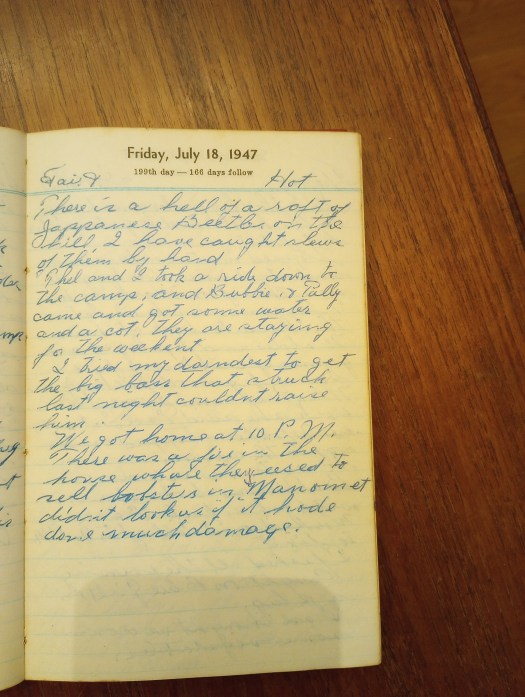 Friday, July 18, 1947
199th day — 166 days follow
Fair & Hot
There is a hell of a raft of
Jappanese Beetles on the
hill, I have caught slews
of them by hand
Thel and I took a ride down to
the camp, and Bubbie & Pully
came and got some water
and a cot. they are staying
for the weekent
I tried my darndest to get
the big bass that struck
last night couldnt raise
him.
We got home at 10 P.M.
There was a fire in the
house where they used to
sell lobsters in Manomet
didnt look as if it hode
done much damage.